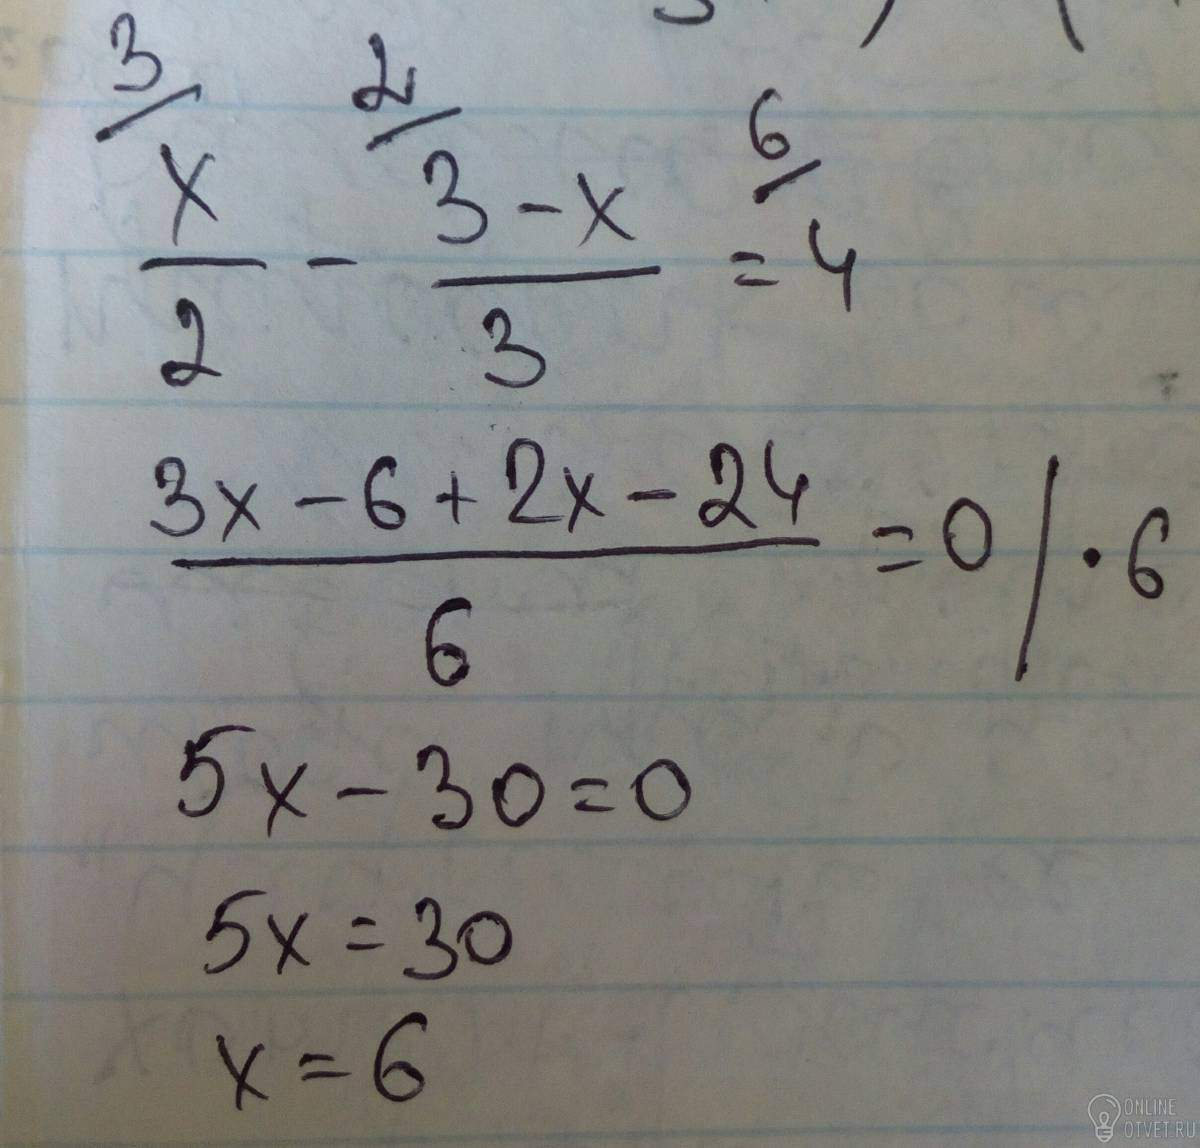 3/ 2/ 6/
x/2 - 3-x/3 = 4
3x - 6 + 2x - 24/6 = 0 | · 6
5x - 30 = 0
5x = 30
x = 6
ONLINE
OTVET.RU